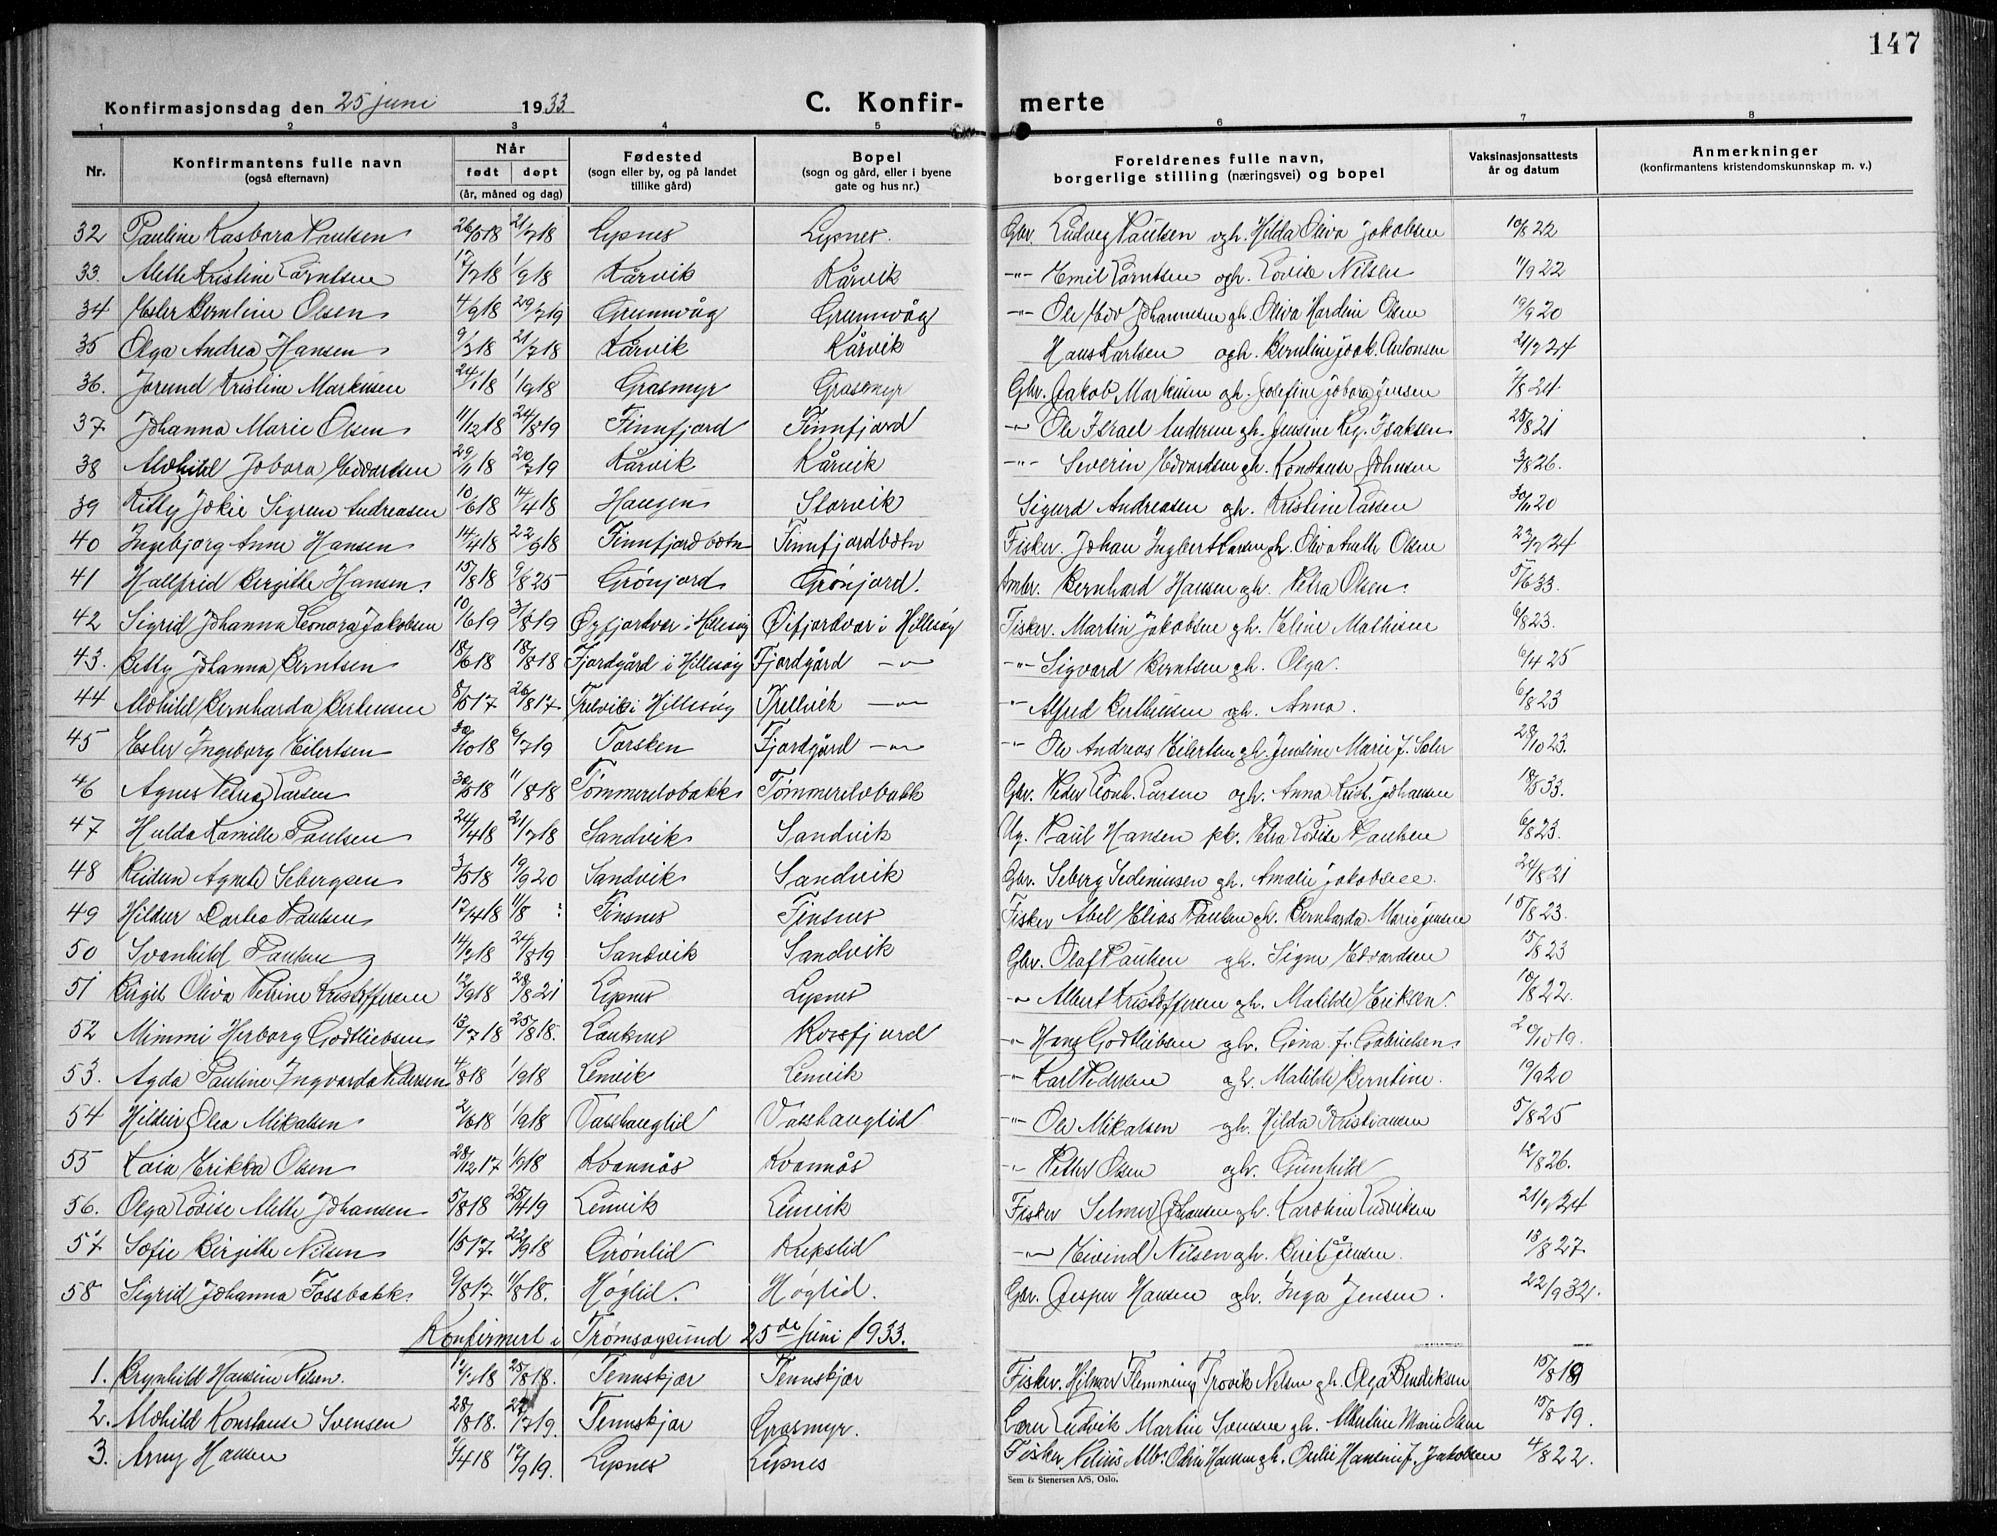 147
Konfirmasjonsdag den 25 juni 1933 C. Konfir- merte
1 2 3 4 5 6 7 8
Nr. Konfirmantens fulle navn (også efternavn) Når født døpt (år, måned og dag) Fødested (sogn eller by, og på landet tillike gård) Bopel (sogn og gård, eller i byene gate og hus nr.) Foreldrenes fulle navn, borgerlige stilling (næringsvei) og bopel Vaksinasjonsattests år og datum Anmerkninger (konfirmantens kristendomskunnskap m. v.)
32 Pauline Kasbara Paulsen 26/5 18 21/7 18 Lysnes Lysnes. Gbr. Ludvig Paulsen ogh. Hilda Oliva Jakobsen 10/8 22
33. Mette Kristine Berntsen 1/9 18 Kårvik Kårvik -"- Emil Berntsen ogh. Lovise Nilsen 11/9 22
34 Ester Berntine Olsen 4/9 18 29/7 19 Grunnvåg Grunnvåg -"- Ole Edv Johannesen gh. Oliva Hardine Olsen 19/9 20
35 Olga Andrea Hansen 9/3 18 21/7 18 Kårvik Kårvik Hans Karlsen ogh. Berntine Joak. Antonsen 21/7 24
36. Jorund Kristine Markusen 24/1 18 1/9 18 Grasmyr Grasmyr Gbr. Jakob Markusen ogh. Josefine Jobara Jensen /8 24.
37 Johanna Marie Olsen 11/12 18 24/8 19 Finnfjord Finnfjord -"- Ole Israel Andersen gh. Jensine Reg. Isaksen 25/8 21
38 Alvhild Jobara Edvardsen 29/11 18 20/7 19 Kårvik Kårvik -"- Severin Edvardsen gh. Konstanse Johnsen 3/8 26.
39 Kitty Jokie Sigrun Andreasen 10/6 18 14/4 18 Haugen Storvik Sigurd Andreasen ogh. Kristine Larsen 30/11 20
40 Ingebjørg Anne Hansen 14/4 18 22/9 18 Finnfjordbotn Finnfjordbotn Fisker. Johan Ingbert Larsen gh. Oliva Olsen 23/7 24
41 Hallfrid Bergithe Hansen. 15/8 18 9/8 25 Grønjord Grønjord. Arbr. Bernhard Hansen ogh. Petra Olsen. 5/6 33.
42 Sigrid Johanna Leonora Jakobsen 10/6 19 3/8 19 Øyfjordvær i Hillesøy Øifjordvær i Hillesøy Fisker. Martin Jakobsen gh. Eline Mathisen 6/8 23.
43. Betty Johanna Berntsen 18/6 18 18/8 18 Fjordgård i Hillesøy Fjordgård -"- -"- Sigvard Berntsen gh. Olga. 6/4 25
44 Alvhild Bernharda Berteussen 8/5 17 26/8 17. Trelvik i Hillesøy Trellvik -"- -"- Alfred Bertheussen ogh. Anna. 6/8 23
45 Ester Ingeborg Eilertsen 30/10 18 6/7 19 Torsken Fjordgård -"- -"- Ole Andreas Eilertsen gh. Jensine Marie J. Sæter 28/10 23.
46 Agnes Petrea Larsen 30/5 18 11/8 18 Tømmerelvbakk Tømmerelvbakk Gbr. Peder Leonh. Larsen ogh. Anna Krist. Johansen 18/5 33.
47 Hulda Kamilla Paulsen 24/4 18 21/7 18 Sandvik Sandvik Ug. Paul Hansen pk. Petra Lovise Paulsen 6/8 23.
48 Reidun Agnete Sebergsen 3/5 18 19/9 20 Sandvik Sandvik Gbr. Seberg Sedeniussen gh. Amalie Jakobsen. 24/8 21
49 Hildur Dortea Paulsen 17/4 18 11/8 : Finsnes Finsnes Fisker Abel Elias Paulsen gh. Bernharda Marie Jensen 15/8 23.
50 Svanhild Paulsen 14/3 18 24/8 19 Sandvik Sandvik Gbr. Olaf Paulsen gh. Signe Edvardsen 15/8 23
51 Birgit Oliva Petrine Kristoffersen 12/9 18 28/8 21 Lysnes Lysnes -"- Albert Kristoffersen gh. Matilde Eriksen. 10/8 22.
52 Mimmi Herborg Godtliebsen 13/7 18 25/8 18. Lauknes Rossfjord -"- Hans Godtliebsen gh. Gina J. Gabrielsen. 20/10 19.
53. Agda Pauline Ingvarda Pedersen 4/8 18 1/9 18 Lenvik Lenvik -"- Karl Pedersen ogh. Matilde Berntine. 19/9 20
54 Hildur Olea Mikalsen 2/6 18 1/9 18 Vasshauglid Vasshauglid -"- Ole Mikalsen ogh. Hilda Kristiansen 5/8 25
55 Kaia Erikka Olsen 28/12 17 1/9 18 Kvannås Kvannås -"- Petter Olsen ogh. Gunhild 12/8 26.
56. Olga Lovise Mette Johansen 5/8 18 25/4 19 Lenvik Lenvik Fisker Selmer Johansen gh. Karoline Ludviksen 21/7 24
57 Sofie Birgitte Nilsen 1/5 17. 22/9 18 Grønlid Repslid -"- Eivind Nilsen ogh. Berit Jensen. 13/8 27
58 Sigrid Johanna Fossbakk. 9/8 17 11/8 18. Høglid. Høglid. Gbr. Jesper Hansen ogh. Inga Jensen. 22/9 32.
Konfirmert i Tromsøysund 25de Juni 1933.
1. Brynhild Hansine Nilsen. 25/8 18. Tennskjær Tennskjær Fisker. Hilmar Flemming Trovik Nilsen gh. Olga Bendiksen 15/8 19
2. Alvhild Konstanse Svensen 28/8 18. 27/7 19. Tennskjær Grasmyr. Lærer Ludvik Martin Svensen gh. Albertine Marie Olsen 15/8 19.
3. Arny Hansen /4 18 17/9 19. Lysnes Lysnes Fisker Nelius Alb. Odin Hansen gh. Otelie Hansine J. Jakobsen 4/8 22.
Sem & Stenersen A/S, Oslo.